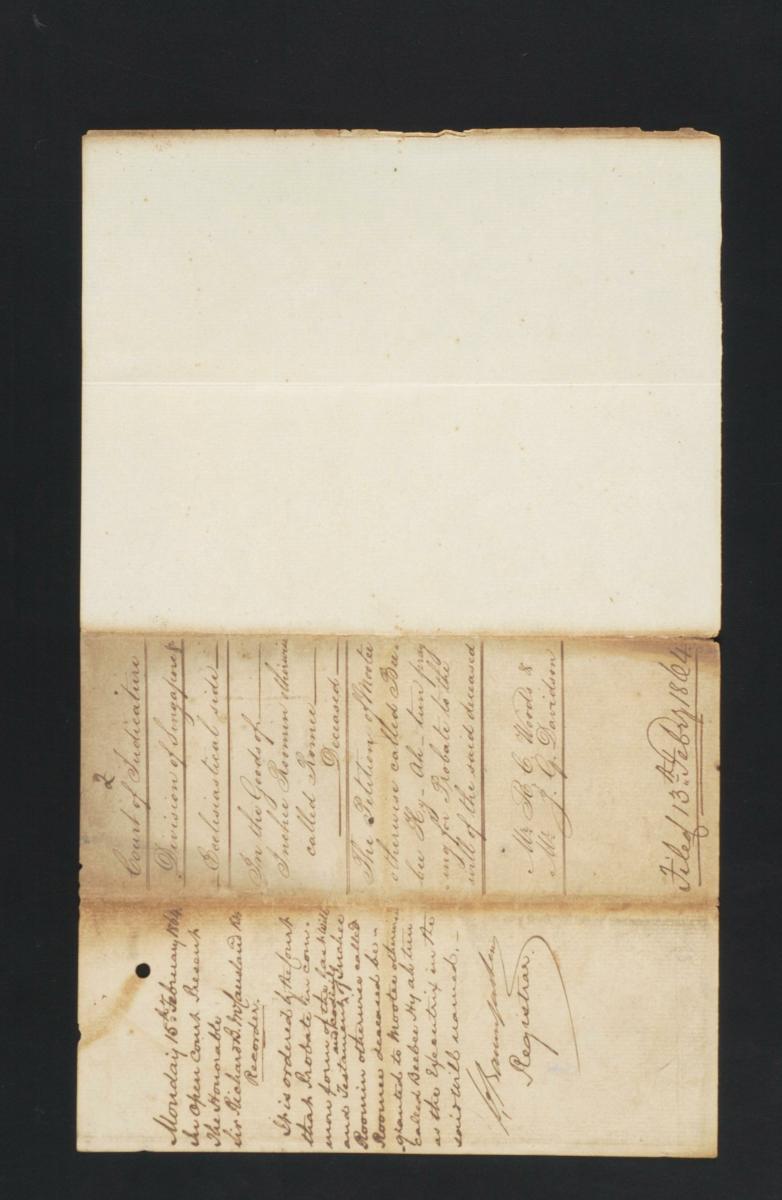 2
Court of Judicature
Division of Singapore
Ecclesiastical side
In the Goods of
Inchee Roomin otherwise
called Romee
Deceased
The Petition of Mootee
otherwise called Bee-
bee Hy-Ah-tun pray
ing for Probate to the
will of the said deceased
Mr R. C. Woods &
Mr J. G. Davidson
Filed 13th Feby 1864
Monday 15th February 1864
In Open Court Present
The Honorable
Sir Richard B. McCausland Kt.
Recorder.
It is ordered by the Court
that Probate in com-
mon form of the Last Will
and Testament of Inchee
Roomin otherwise called
Roomee deceased be
granted to Mootee otherwise
called Beebee Hyahtun
as the Executrix in the
said Will named.
Registrar.